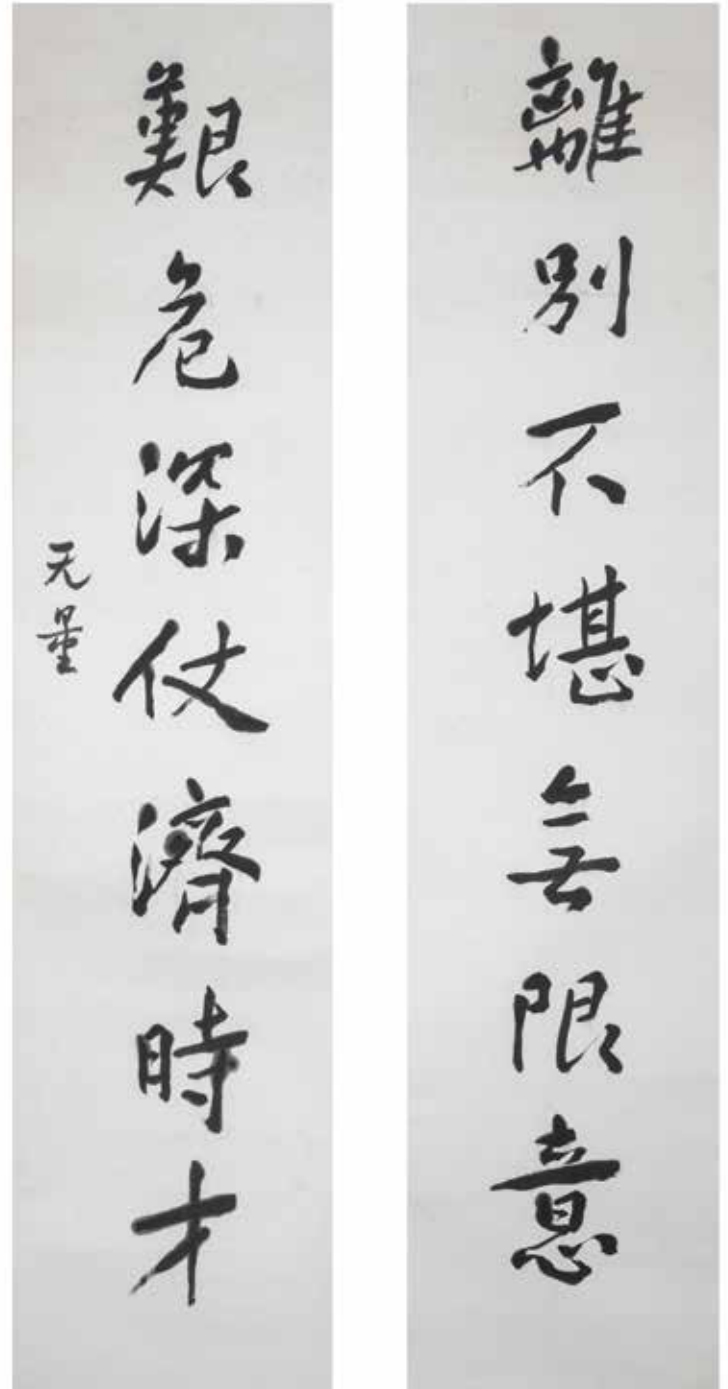 離別不堪無限意
艱危深仗濟時才
无量